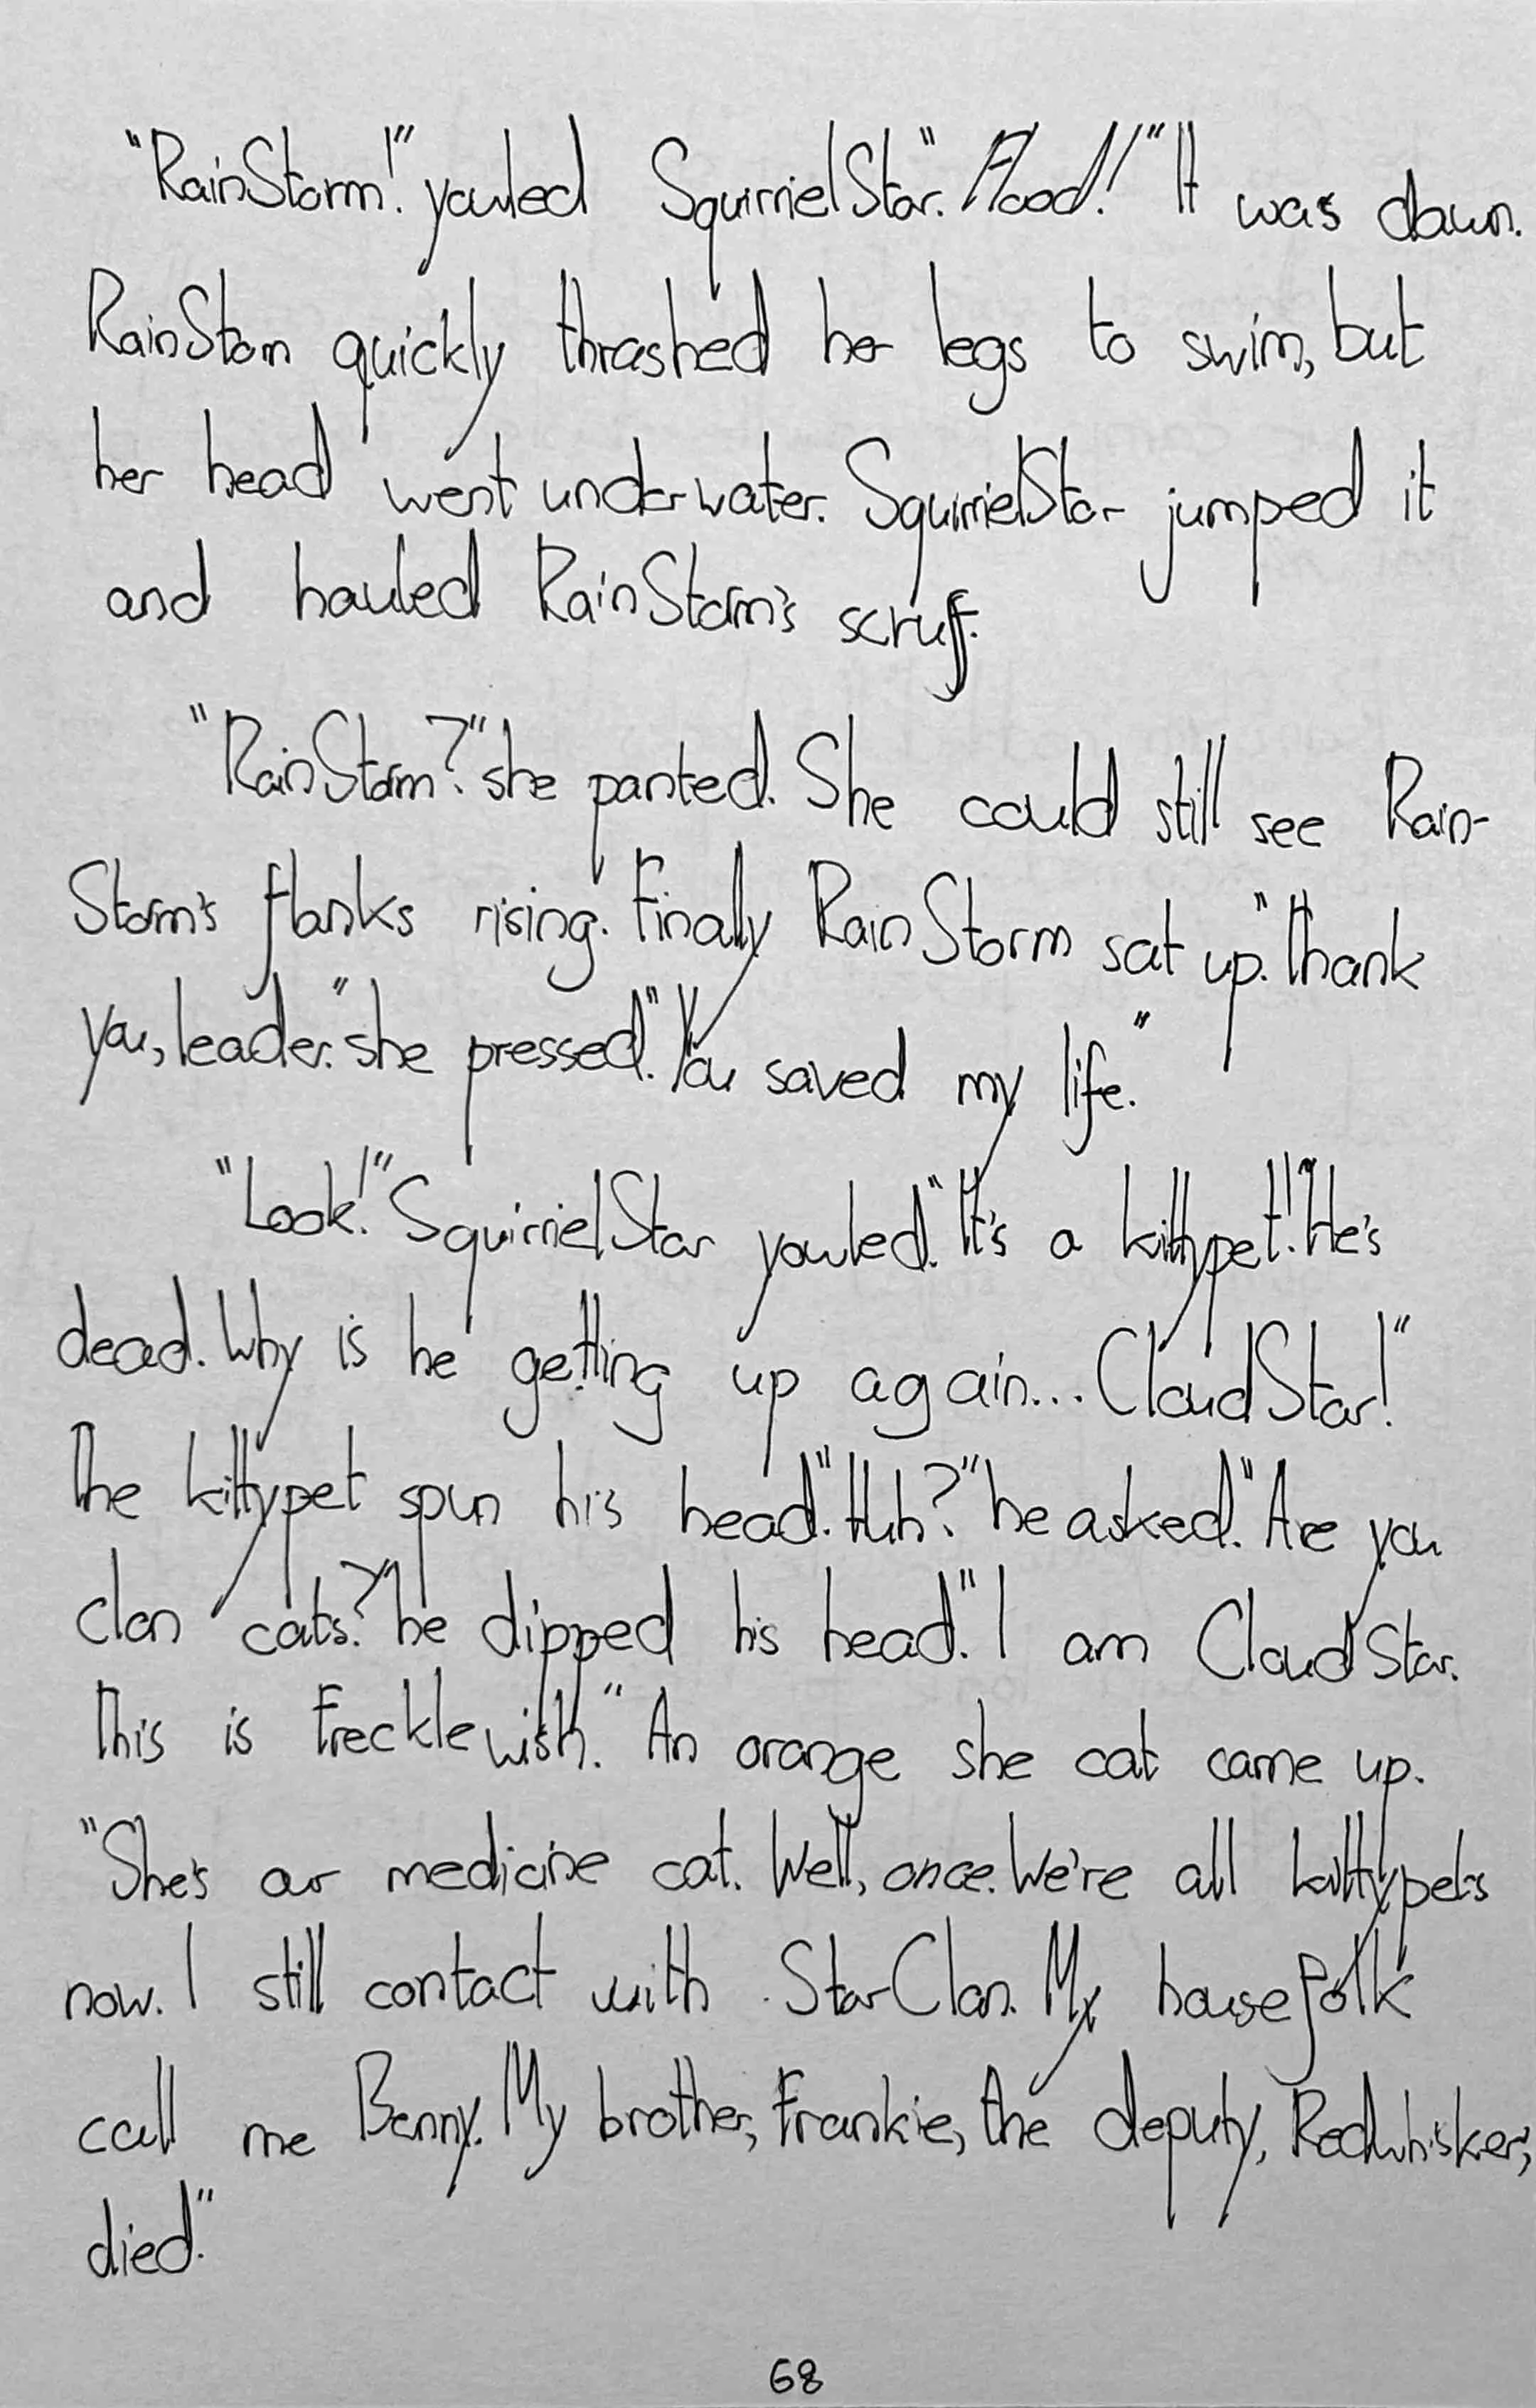 "RainStorm!" yowled SquirrielStar. "Flood!" It was dawn.
RainStorm quickly thrashed her legs to swim, but
her head went underwater. SquirrielStar jumped it
and hauled RainStorm's scruff.
"RainStorm?" she panted. She could still see Rain-
Storm's flanks rising. Finally RainStorm sat up. "Thank
you, leader." she pressed. "You saved my life."
"Look!" SquirrielStar yowled. "It's a kittypet!" "He's
dead. Why is he getting up again... CloudStar!"
The kittypet spun his head. "Huh?" he asked. "Are you
clan cats?" he dipped his head. "I am CloudStar.
This is Frecklewish." An orange she cat came up.
"She's our medicine cat. Well, once. We're all kittypets
now. I still contact with StarClan. My housefolk
call me Benny. My brother, Frankie, the deputy, Redwhisker,
died."
68